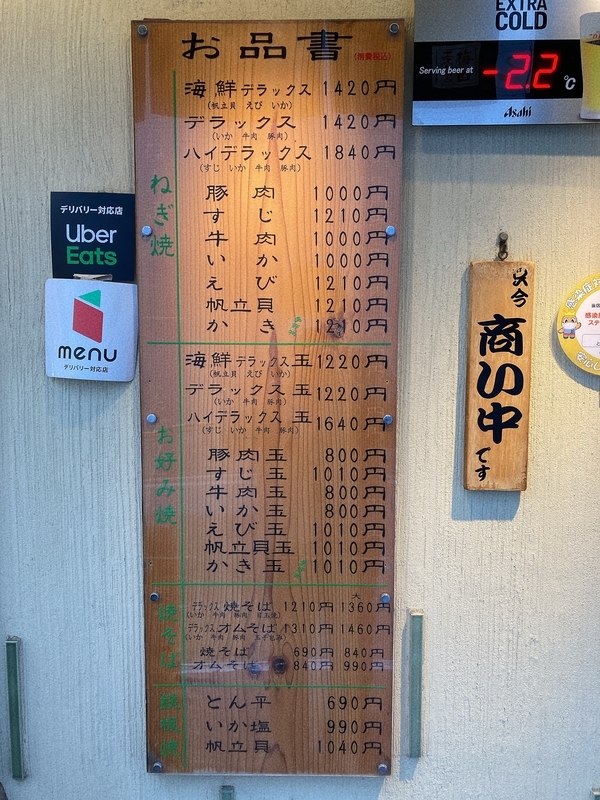 お品書 (消費税込)
ねぎ焼
海鮮デラックス 1420円
(帆立貝 えび いか)
デラックス 1420円
(いか 牛肉 豚肉)
ハイデラックス 1840円
(すじ いか 牛肉 豚肉)
豚肉 1000円
すじ 1210円
牛肉 1000円
いか 1000円
えび 1210円
帆立貝 1210円
かき 1210円
お好み焼
海鮮デラックス玉 1220円
(帆立貝 えび いか)
デラックス玉 1220円
(いか 牛肉 豚肉)
ハイデラックス玉 1640円
(すじ いか 牛肉 豚肉)
豚肉玉 800円
すじ玉 1010円
牛肉玉 800円
いか玉 800円
えび玉 1010円
帆立貝玉 1010円
かき玉 1010円
焼そば
大
デラックス焼そば 1210円 1360円
デラックスオムそば 1310円 1460円
焼そば 690円 840円
オムそば 840円 990円
鉄板焼
とん平 690円
いか塩 990円
帆立貝 1040円
デリバリー対応店
Uber
Eats
menu
デリバリー対応店
EXTRA
COLD
Serving beer at -2.2℃
Asahi
只今
商い中
です